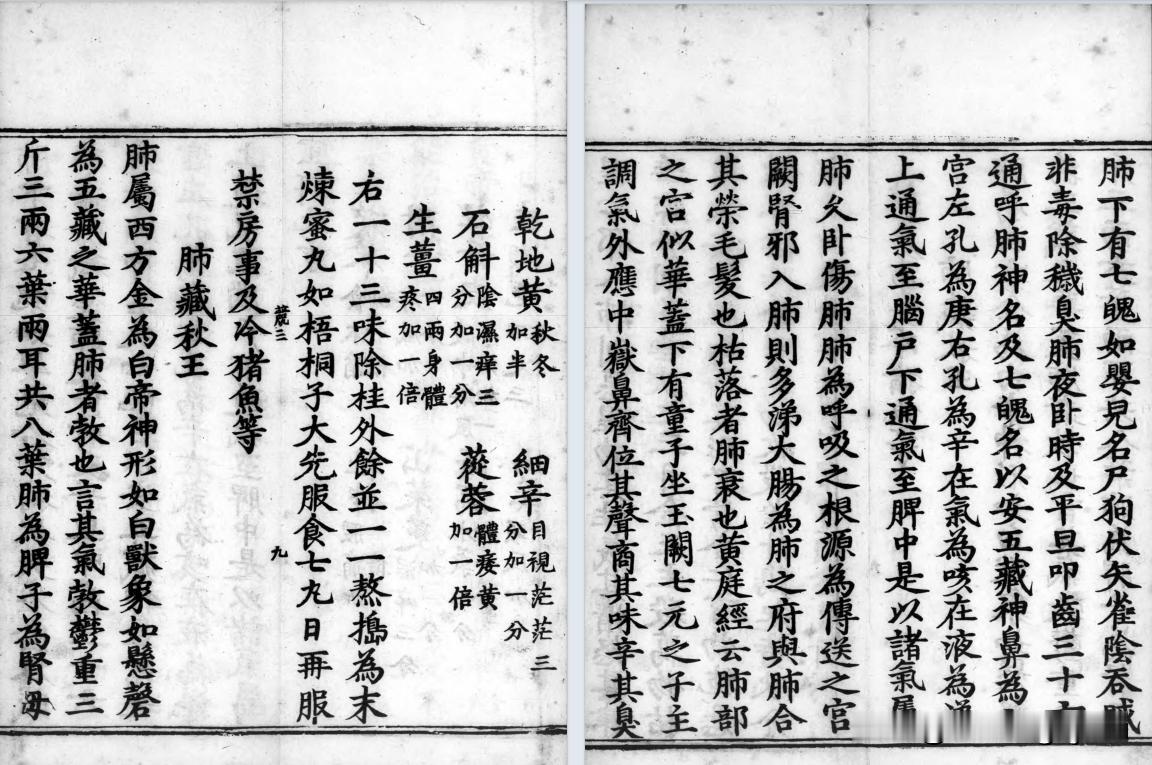 乾地黃秋冬加半　細辛目視茫茫三分加一分
石斛陰濕痒三分加一分　蓯蓉體痿黃加一倍
生薑四兩身體疼加一倍
右一十三味除桂外餘並一一熬搗為末
煉蜜丸如梧桐子大先服食七丸日再服
九
禁房事及冷猪魚等
肺藏秋王
肺屬西方金為白帝神形如白獸象如懸磬
為五藏之華蓋肺者敦也言其氣敦鬱重三
斤三兩六葉兩耳共八葉肺為脾子為腎母
肺下有七魄如嬰兒名尸狗伏矢雀陰吞賊
非毒除穢臭肺夜卧時及平旦叩齒三十
通呼肺神名及七魄名以安五藏神鼻為
宮左孔為庚右孔為辛在氣為咳在液為
上通氣至腦戶下通氣至脾中是以諸氣屬
肺久卧傷肺肺為呼吸之根源為傳送之宮
闕腎邪入肺則多涕大腸為肺之府與肺合
其榮毛髮也枯落者肺衰也黃庭經云肺部
之宮似華蓋下有童子坐玉闕七元之子主
調氣外應中嶽鼻齊位其聲商其味辛其臭